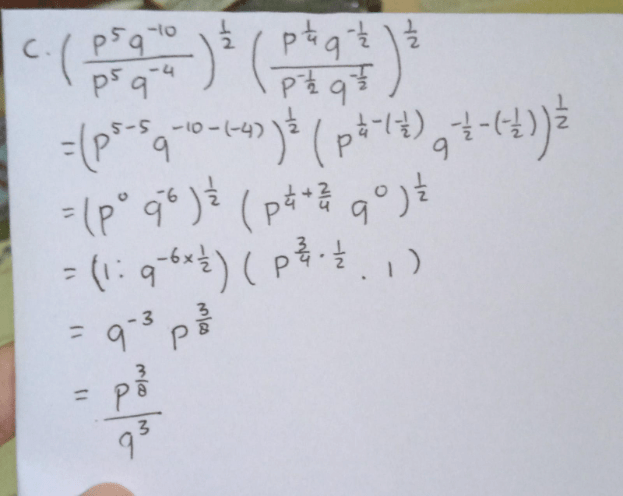 c. (p⁵q⁻¹⁰ / p⁵q⁻⁴)^(1/2) (p^(1/4) q^(-1/2) / p^(-1/2) q^(-1/2))^(1/2)
= (p⁵⁻⁵ q^(-10-(-4)))^(1/2) (p^(1/4-(-1/2)) q^(-1/2-(-1/2)))^(1/2)
= (p⁰ q⁻⁶)^(1/2) (p^(1/4+2/4) q⁰)^(1/2)
= (1 : q^(-6×1/2)) (p^(3/4 · 1/2) . 1)
= q⁻³ p^(3/8)
= p^(3/8) / q³